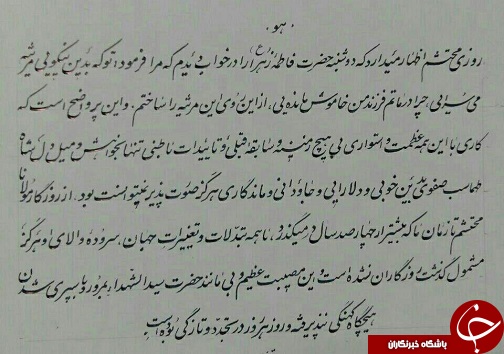 هو
روزی محتشم اظهار میدارد که دوشینه حضرت فاطمهٔ زهرا (ع) را در خواب بدیدم که مرا فرمود: تو که بدین نیکویی مرثیه
میسرایی، چرا در ماتم فرزند من خاموش مانده یی، از این روی این مرثیه را ساختم، و این پر واضح است که
کاری با این همه عظمت و استواری بی هیچ زمینه و سابقه قبلی و تاییدات باطنی تنها بخواهش و میل دل شاه
طهماسب صفوی بدین خوبی و دلارایی و جاودانی و ماندگاری هرگز صورت پذیر نمیتوانست بود. از روزگار مولانا
محتشم تا زمان ما که بیشتر از چهار صد سال در میگذرد، با همه تبدلات و تغییرات جهان، سروده والای او هرگز
مشمول گذشت روزگاران نشده است و این مصیبت عظیم بی مانند حضرت سید الشهدا، بمرور و با سپری شدن
هیچگاه کهنگی نپذیرفته و روز بروز در تجدد و تازگی بوده است
باشگاه خبرنگاران